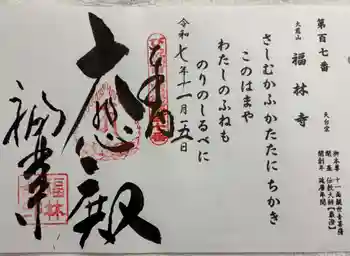 第百七番
大慈山 福林寺 天台宗
御本尊 十一面観世音菩薩
開基 伝教大師【最澄】
開創年 延暦年間
さしむかふかたたにちかき
このはまや
わたしのふねも
のりのしるべに
令和七年十一月一五日
奉拝
大悲殿
福林寺
福林